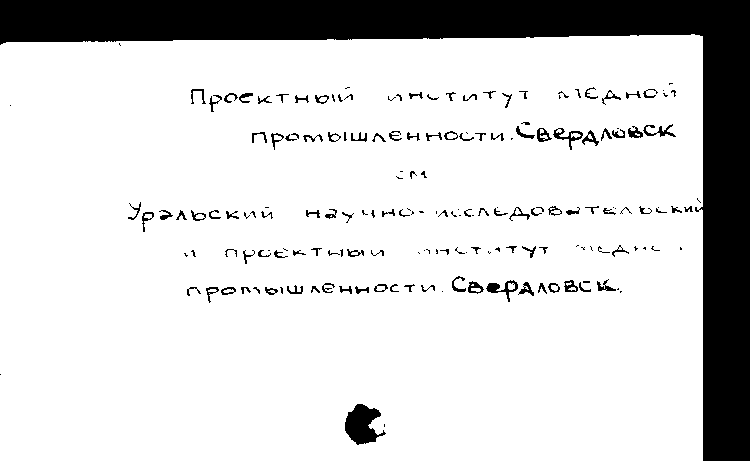 Проектный институт медной
промышленности. Свердловск
см
Уральский научно-исследовательский
и проектный институт медно
промышленности. Свердловск.